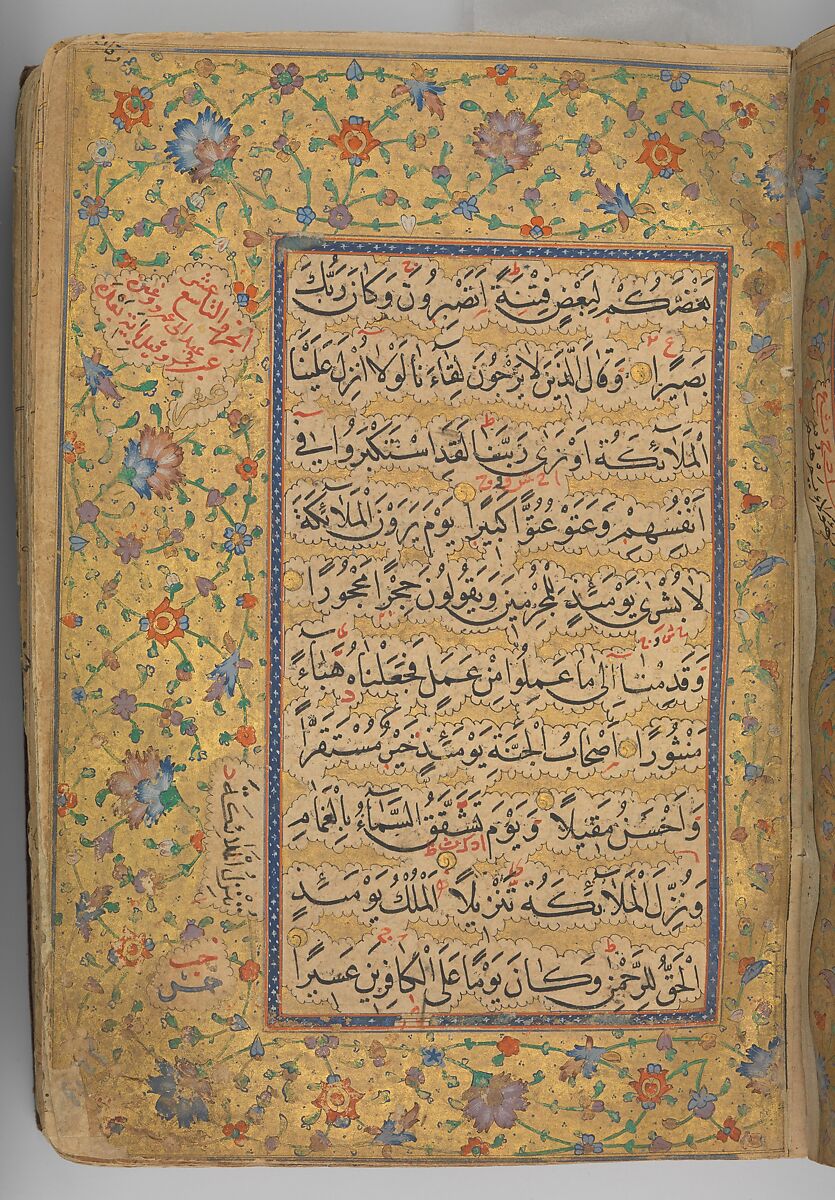 بَعْضَكُمْ لِبَعْضٍ فِتْنَةً اَتَصْبِرُونَ وَكَانَ رَبُّكَ
بَصِيرًا وَقَالَ الَّذِينَ لَا يَرْجُونَ لِقَاءَنَا لَوْلَا اُنْزِلَ عَلَيْنَا
الْمَلَآئِكَةُ اَوْ نَرٰى رَبَّنَا لَقَدِ اسْتَكْبَرُوا فِي
اَنْفُسِهِمْ وَعَتَوْ عُتُوًّا كَبِيرًا يَوْمَ يَرَوْنَ الْمَلَآئِكَةَ
لَا بُشْرٰى يَوْمَئِذٍ لِلْمُجْرِمِينَ وَيَقُولُونَ حِجْرًا مَحْجُورًا
وَقَدِمْنَا اِلٰى مَا عَمِلُوا مِنْ عَمَلٍ فَجَعَلْنَاهُ هَبَآءً
مَنْثُورًا اَصْحَابُ الْجَنَّةِ يَوْمَئِذٍ خَيْرٌ مُسْتَقَرًّا
وَاَحْسَنُ مَقِيلًا وَيَوْمَ تَشَقَّقُ السَّمَآءُ بِالْغَمَامِ
وَنُزِّلَ الْمَلَآئِكَةُ تَنْزِيلًا اَلْمُلْكُ يَوْمَئِذٍ
الْحَقُّ لِلرَّحْمٰنِ وَكَانَ يَوْمًا عَلَى الْكَافِرِينَ عَسِيرًا
الجزء التاسع عشر